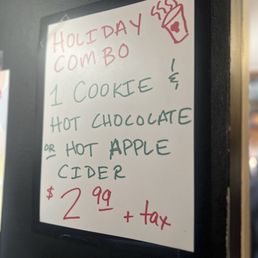 HOLIDAY
COMBO
1 COOKIE &
HOT CHOCOLATE
OR HOT APPLE
CIDER
$2.99 + tax